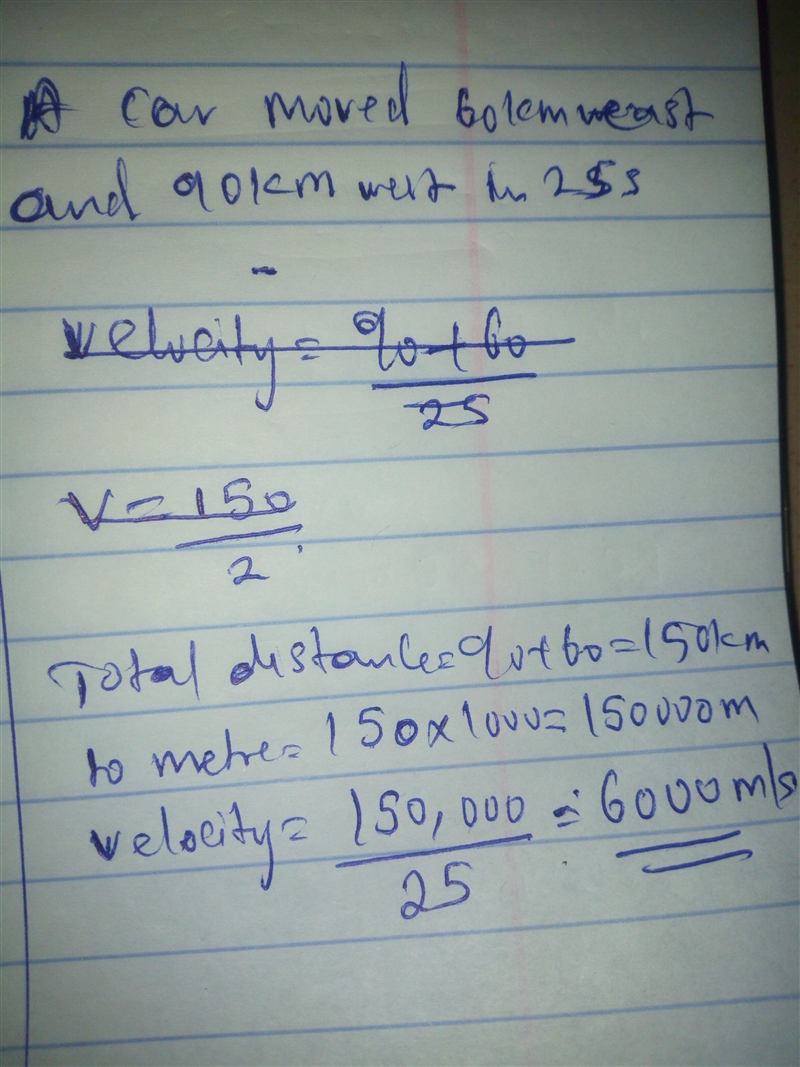 A car moved 60km east
and 90km west in 25s
-
velocity = 90+60
25
V = 150
2
Total distance = 90+60 = 150km
to metre = 150x1000 = 150000m
velocity = 150,000 = 6000m/s
25